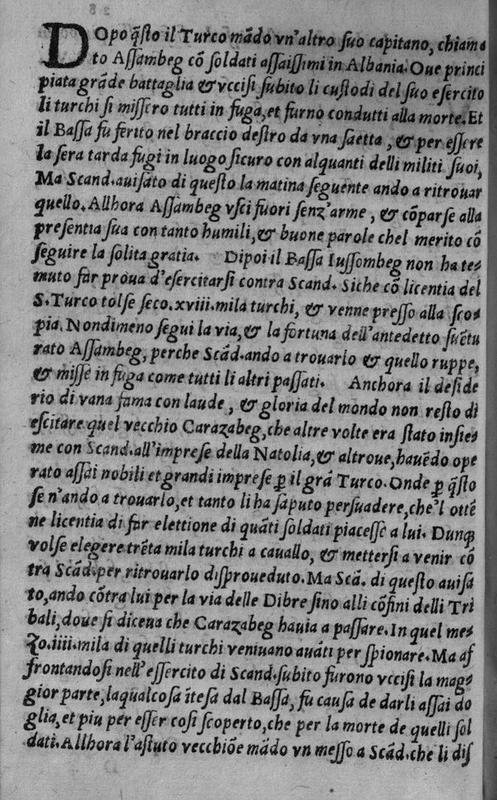 DOpo q̃sto il Turco mãdo vn'altro suo capitano, chiama
to Assambeg cõ soldati assaissimi in Albania. Oue princi
piata grãde battaglia & vccisi subito li custodi del suo esercito
li turchi si missero tutti in fuga, et furno condutti alla morte. Et
il Bassa fu ferito nel braccio destro da vna saetta, & per essere
la sera tarda fugi in luogo sicuro con alquanti delli militi suoi,
Ma Scand. auisato di questo la matina seguente ando a ritrouar
quello. Allhora Assambeg vsci fuori senz'arme, & cõparse alla
presentia sua con tanto humili, & buone parole chel meritò cõ
seguire la solita gratia. Dipoi il Bassa Iussombeg non ha te=
muto far proua d'esercitarsi contra Scand. Siche cõ licentia del
S. Turco tolse seco. xviii. mila turchi, & venne presso alla sco=
pia. Nondimeno segui la via, & la fortuna dell'antedetto suẽtu
rato Assambeg, perche Scãd. ando a trouarlo & quello ruppe,
& misse in fuga come tutti li altri passati. Anchora il deside
rio di vana fama con laude, & gloria del mondo non resto di
escitare quel vecchio Carazabeg, che altre volte era stato insie=
me con Scand. all'imprese della Natolia, & altroue, hauẽdo ope
rato assai nobili et grandi imprese ꝑ il grã Turco. Onde ꝑ q̃sto
se n'ando a trouarlo, et tanto li ha saputo persuadere, che'l ottẽ
ne licentia di far elettione di quãti soldati piacesse a lui. Dunqȝ
volse elegere trẽta mila turchi a cauallo, & mettersi a venir cõ
tra Scãd. per ritrouarlo disproueduto. Ma Scã. di questo auisa
to, ando cõtra lui per la via delle Dibre sino alli cõfini delli Tri
bali, doue si diceua che Carazabeg hauia a passare. In quel me=
Zo. iiii. mila di quelli turchi veniuano auãti per spionare. Ma af
frontandosi nell'essercito di Scand. subito furono vccisi la mag=
gior parte, laqualcosa ĩtesa dal Bassa, fu causa de darli assai do
glia, et piu per esser cosi scoperto, che per la morte de quelli sol
dati. Allhora l'astuto vecchiõe mãdo vn messo a Scãd. che li dis